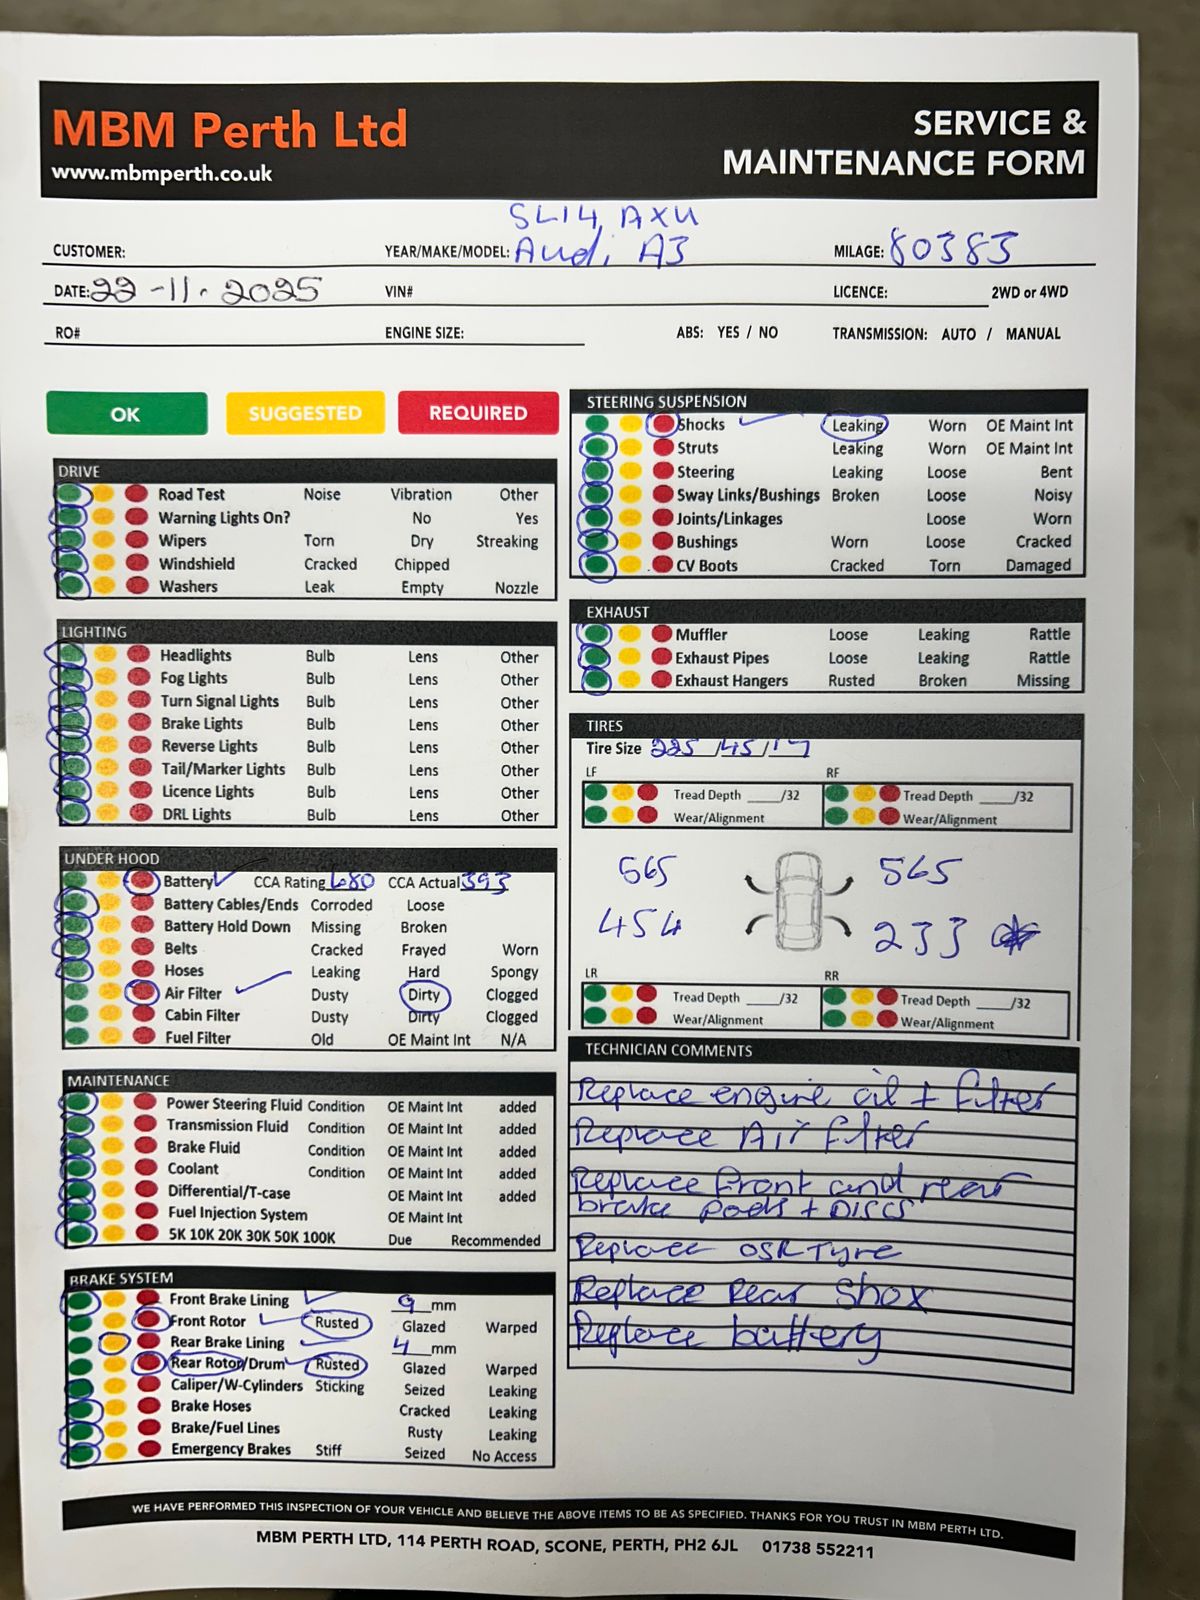 MBM Perth Ltd
www.mbmperth.co.uk
SERVICE &
MAINTENANCE FORM
SL14 AXU
CUSTOMER: YEAR/MAKE/MODEL: Audi A3 MILAGE: 80383
DATE: 22-11-2025 VIN# LICENCE: 2WD or 4WD
RO# ENGINE SIZE: ABS: YES / NO TRANSMISSION: AUTO / MANUAL
OK SUGGESTED REQUIRED
DRIVE
Road Test Noise Vibration Other
Warning Lights On? No Yes
Wipers Torn Dry Streaking
Windshield Cracked Chipped
Washers Leak Empty Nozzle
LIGHTING
Headlights Bulb Lens Other
Fog Lights Bulb Lens Other
Turn Signal Lights Bulb Lens Other
Brake Lights Bulb Lens Other
Reverse Lights Bulb Lens Other
Tail/Marker Lights Bulb Lens Other
Licence Lights Bulb Lens Other
DRL Lights Bulb Lens Other
UNDER HOOD
Battery CCA Rating 680 CCA Actual 393
Battery Cables/Ends Corroded Loose
Battery Hold Down Missing Broken
Belts Cracked Frayed Worn
Hoses Leaking Hard Spongy
Air Filter Dusty Dirty Clogged
Cabin Filter Dusty Dirty Clogged
Fuel Filter Old OE Maint Int N/A
MAINTENANCE
Power Steering Fluid Condition OE Maint Int added
Transmission Fluid Condition OE Maint Int added
Brake Fluid Condition OE Maint Int added
Coolant Condition OE Maint Int added
Differential/T-case OE Maint Int added
Fuel Injection System OE Maint Int
5K 10K 20K 30K 50K 100K Due Recommended
BRAKE SYSTEM
Front Brake Lining 9 mm
Front Rotor Rusted Glazed Warped
Rear Brake Lining 4 mm
Rear Rotor/Drum Rusted Glazed Warped
Caliper/W-Cylinders Sticking Seized Leaking
Brake Hoses Cracked Leaking
Brake/Fuel Lines Rusty Leaking
Emergency Brakes Stiff Seized No Access
STEERING SUSPENSION
Shocks Leaking Worn OE Maint Int
Struts Leaking Worn OE Maint Int
Steering Leaking Loose Bent
Sway Links/Bushings Broken Loose Noisy
Joints/Linkages Loose Worn
Bushings Worn Loose Cracked
CV Boots Cracked Torn Damaged
EXHAUST
Muffler Loose Leaking Rattle
Exhaust Pipes Loose Leaking Rattle
Exhaust Hangers Rusted Broken Missing
TIRES
Tire Size 225/45/17
LF RF
Tread Depth ____/32 Tread Depth ____/32
Wear/Alignment Wear/Alignment
565 565
454 233
LR RR
Tread Depth ____/32 Tread Depth ____/32
Wear/Alignment Wear/Alignment
TECHNICIAN COMMENTS
Replace engine oil + filter
Replace Air filter
Replace front and rear
brake pads + DISCS
Replace OSR Tyre
Replace Rear Shox
Replace battery
WE HAVE PERFORMED THIS INSPECTION OF YOUR VEHICLE AND BELIEVE THE ABOVE ITEMS TO BE AS SPECIFIED. THANKS FOR YOU TRUST IN MBM PERTH LTD.
MBM PERTH LTD, 114 PERTH ROAD, SCONE, PERTH, PH2 6JL 01738 552211